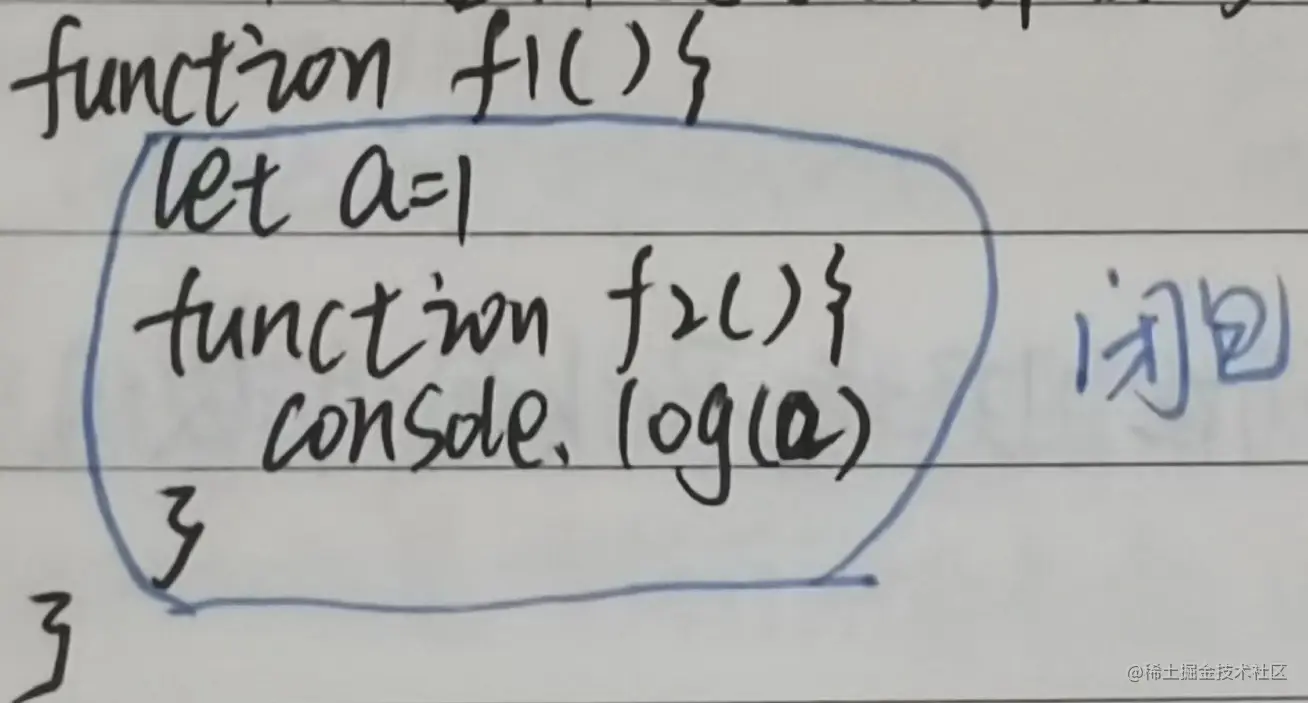 function f1(){
let a=1
function f2(){
console.log(a)
}
}
闭包
@稀土掘金技术社区